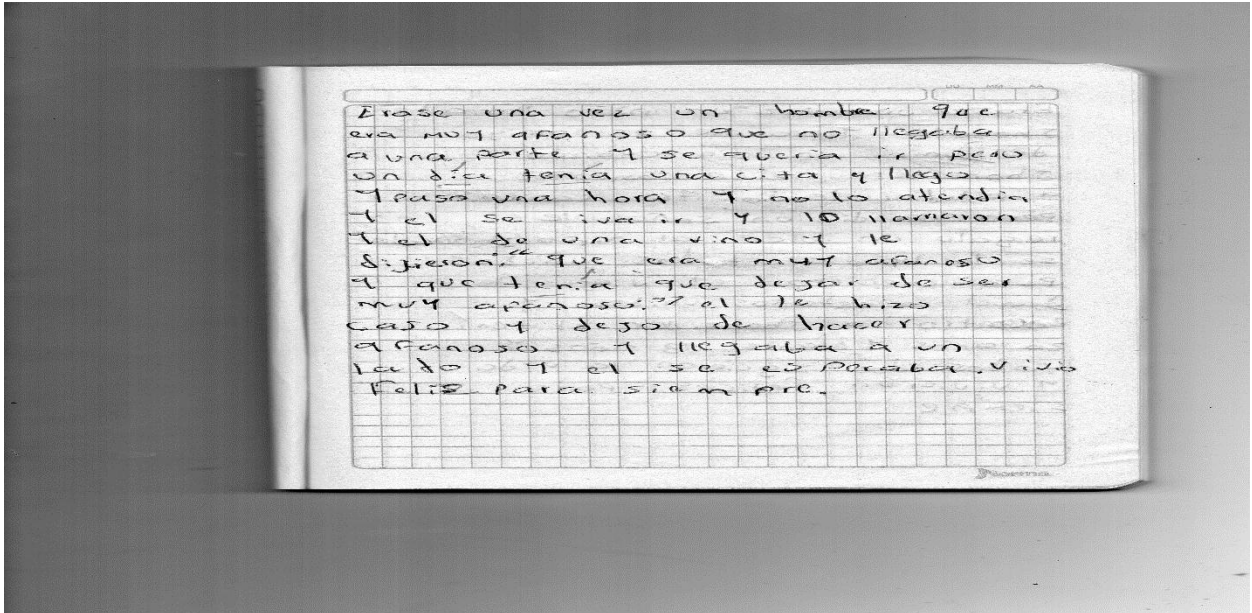 Erase una vez un hombre que
era muy afanoso que no llegaba
a una parte y se queria ir pero
un día tenía una cita y llego
y paso una hora y no lo atendia
y el se iva ir y lo llamaron
y el de una vino y le
dijieron: "que era muy afanoso
y que tenía que dejar de ser
muy afanoso:" el le hizo
caso y dejo de hacer
afanoso y llegaba a un
lado y el se esperaba. vivio
Felis para siempre.
norma